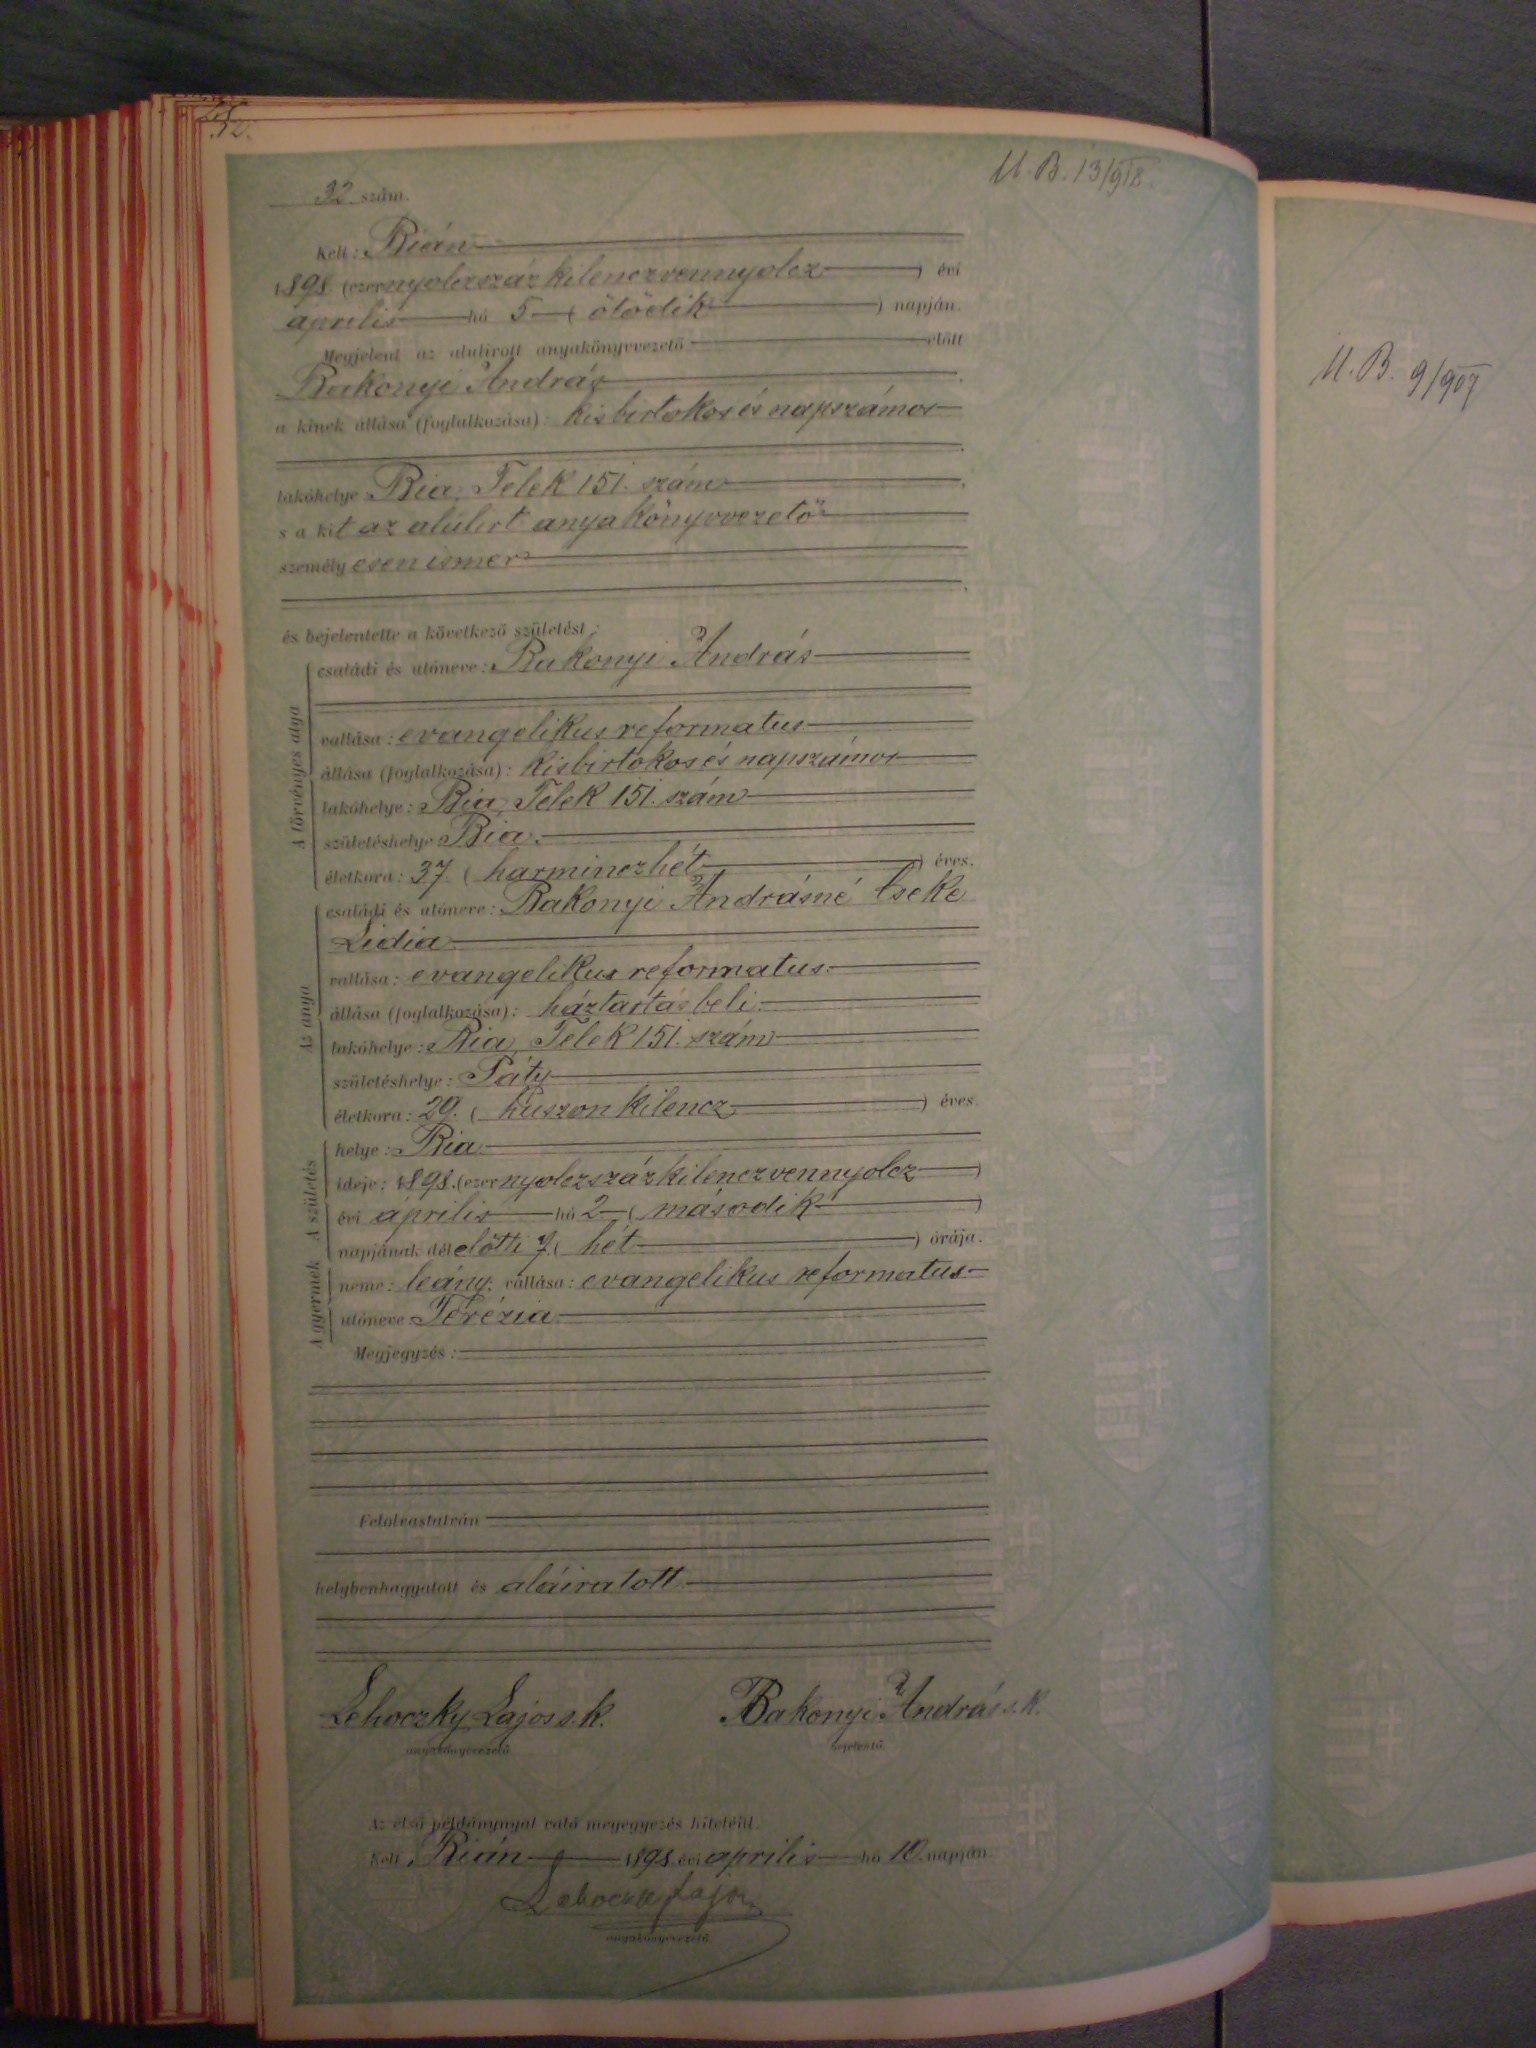 32.
M. B. 13/918.
32 szám.
Kelt: Bián
1898 (ezernyolczszáz kilenczvennyolcz) évi
április hó 5 (ötödik) napján.
Megjelent az alulirott anyakönyvvezető előtt
Bakonyi András
a kinek állása (foglalkozása): kisbirtokos és napszámos
lakóhelye: Bia, Telek 151. szám
s a kit az alúlirt anyakönyvvezető
személyesen ismer
és bejelentette a következő születést:
A törvényes atya
családi és utóneve: Bakonyi András
vallása: evangelikus reformatus
állása (foglalkozása): kisbirtokos és napszámos
lakóhelye: Bia, Telek 151. szám
születéshelye: Bia.
életkora: 37 (harminczhét) éves.
Az anya
családi és utóneve: Bakonyi Andrásné Cseke
Lidia
vallása: evangelikus reformatus.
állása (foglalkozása): háztartásbeli.
lakóhelye: Bia, Telek 151. szám
születéshelye: Páty
életkora: 29. (huszonkilencz) éves.
A születés
helye: Bia
ideje: 1898. (ezernyolczszázkilenczvennyolcz)
évi április hó 2 (második)
napjának délelőtti 7. (hét) órája.
A gyermek
neme: leány. vallása: evangelikus reformatus
utóneve: Térézia
Megjegyzés:
Felolvastatván
helybenhagyatott és aláiratott
Lehoczky Lajos s. k. Bakonyi András s. k.
anyakönyvvezető. bejelentő.
Az első példánynyal való megegyezés hiteléül.
Kelt Bián 1898. évi április hó 10. napján.
Lehoczky Lajos
anyakönyvvezető.
M. B. 9/907